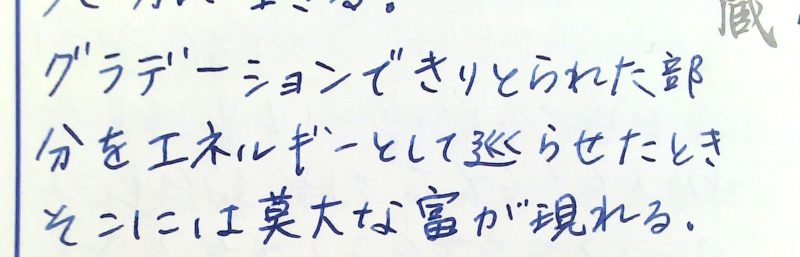 グラデーションできりとられた部
分をエネルギーとして巡らせたとき
そこには莫大な富が現れる.